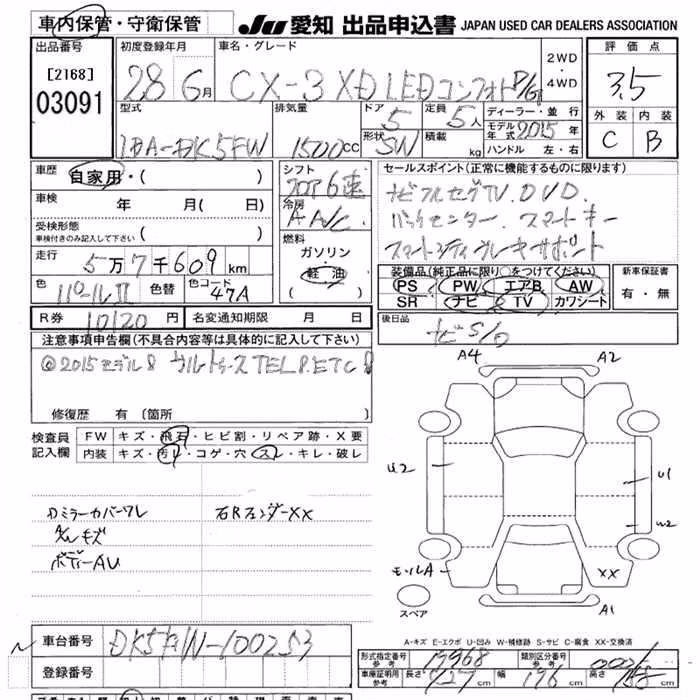 車内保管・守衛保管 JU 愛知 出品申込書 JAPAN USED CAR DEALERS ASSOCIATION
出品番号 初度登録年月 車名・グレード 2WD・4WD 評価点
[2168]
03091 28 6月 CX-3 XD LEDコンフォートP/G 3.5
型式 排気量 ドア 5 定員 5人 ディーラー・並行 外装 内装
モデル年式 2015年 C B
LDA-DK5FW 1500cc 形状 SW 積載 kg ハンドル 左・右
車歴 自家用・( ) シフト セールスポイント(正常に機能するものに限ります)
フロア6速 ナビフルセグTV. DVD.
車検 年 月( 日) 冷房 AA/C バックセンサー スマートキー
受検形態 スマートシティブレーキサポート
車検付きのみ記入して下さい ( ) 燃料
走行 5万7千609km ガソリン・軽油 装備品(純正品に限り○をつけてください) 新車保証書
PS PW エアB AW 有・無
色 色替 色コード 47A SR ナビ TV カワシート
R券 10120円 名変通知期限 月 日 後日品
注意事項申告欄(不具合内容等は具体的に記入して下さい) ナビS/D
◎2015モデル
修復歴 有 (箇所 )
検査員記入欄 FW キズ・飛石・ヒビ割・リペア跡・X要
内装 キズ・汚レ・コゲ・穴・スレ・キレ・破レ
A4 A2
U2 U1
W2
Dミラーカバーワレ 右RフェンダーXX
ボディーAU
モールA XX
スペア A1
A-キズ E-エクボ U-凹み W-補修跡 S-サビ C-腐食 XX-交換済
車台番号 DK5FW-100253
登録番号
形式指定番号 参考 17968 類別区分番号 参考
車庫証明用 参考 長さ 427cm 幅 176cm 高さ cm